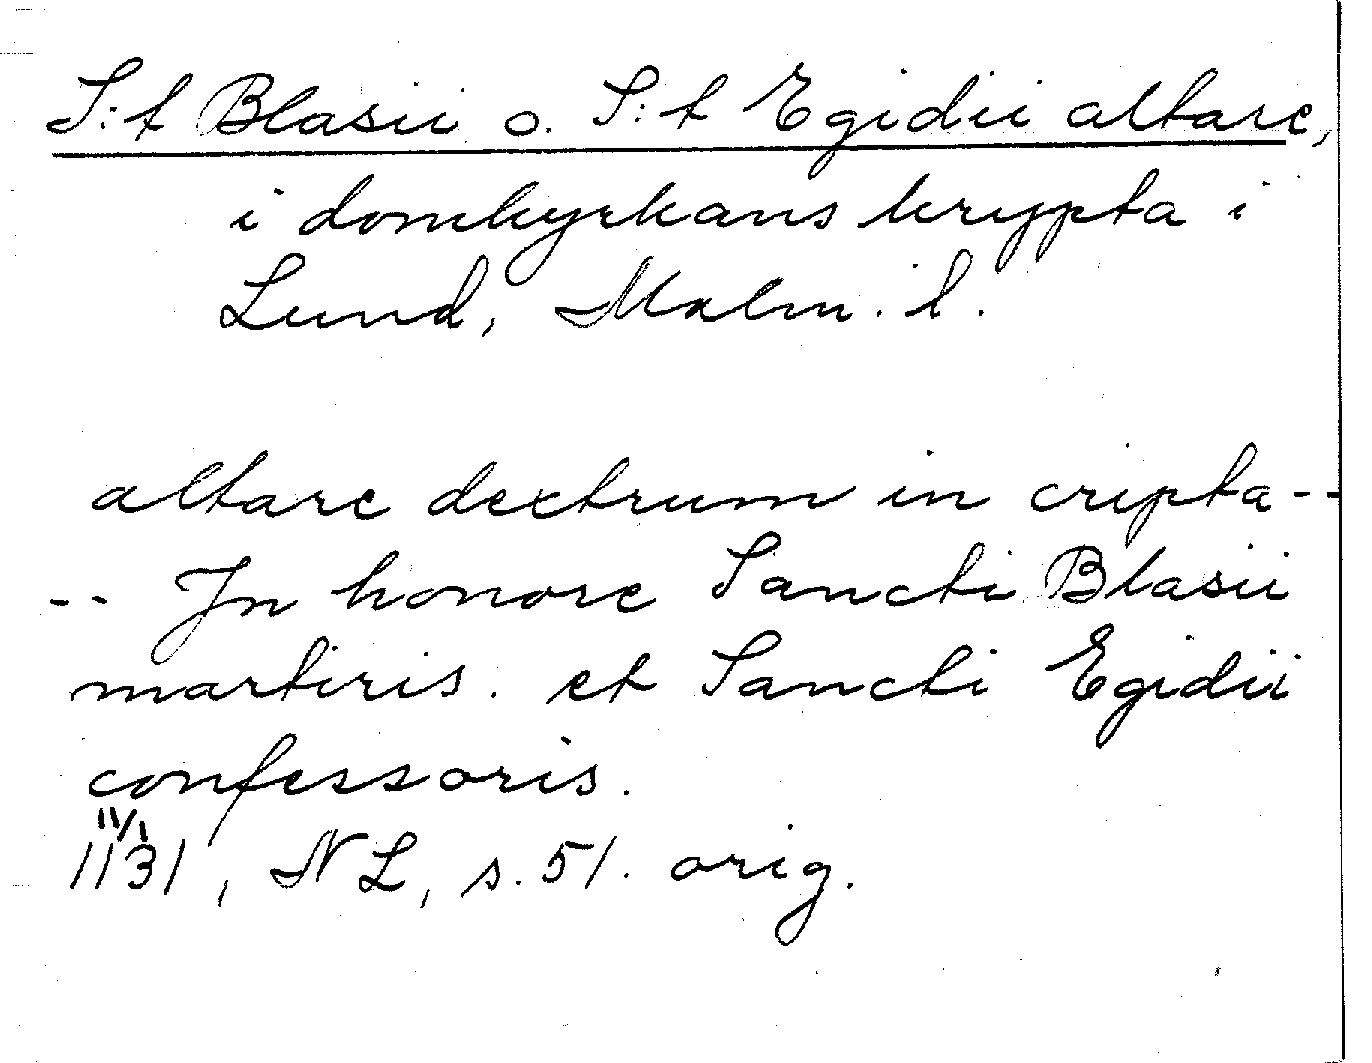 S:t Blasii o. S:t Egidii altare,
i domkyrkans krypta i
Lund, Malm. l.
altare dextrum in cripta--
-- In honore Sancti Blasii
martiris. et Sancti Egidii
confessoris.
11/1
1131, NL, s. 51. orig.